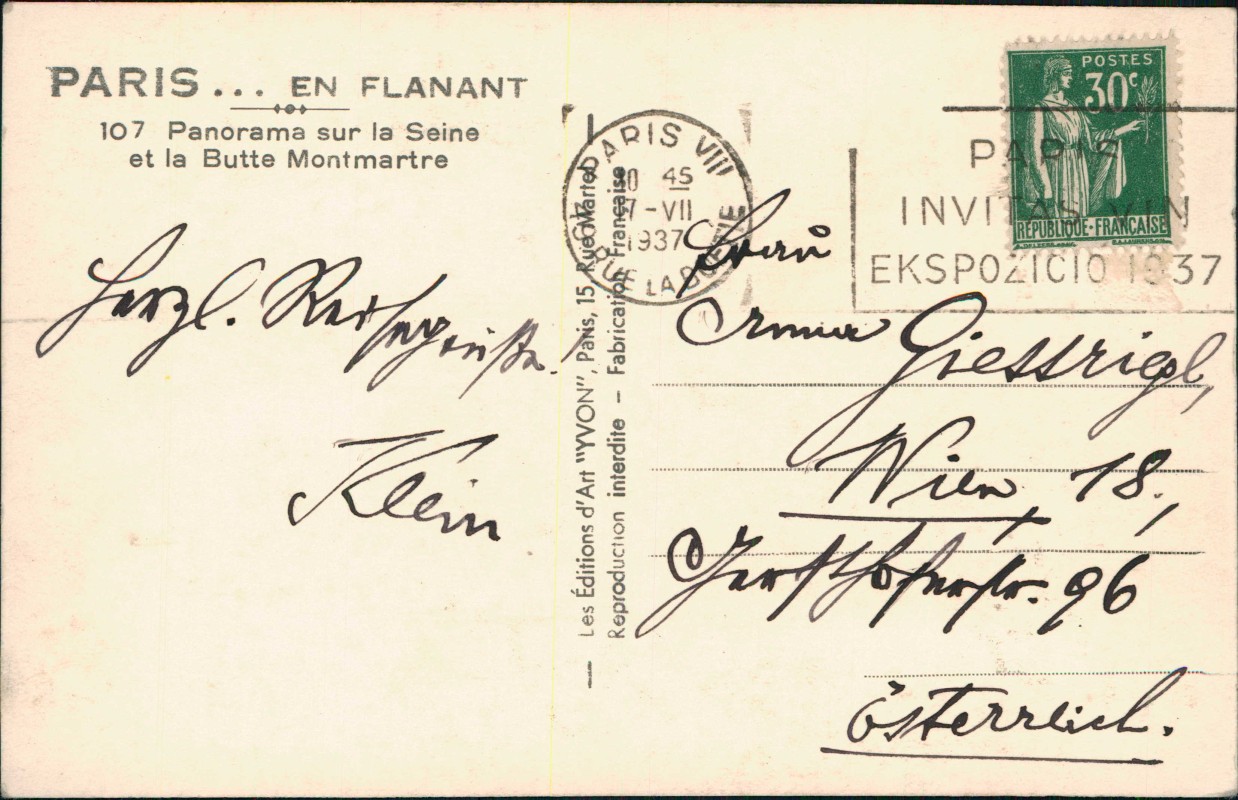 PARIS... EN FLANANT
107 Panorama sur la Seine
et la Butte Montmartre
Herzl. Reisegrüße.
Klein
Les Éditions d'Art "YVON", Paris, 15, Rue Martel
Reproduction interdite – Fabrication Française
PARIS VIII
45
7-VII
1937
RUE LA BOETIE
POSTES
30c
REPUBLIQUE-FRANÇAISE
PARIS
INVITAS VIN
EKSPOZICIO 1937
Frau
Irma Giessriegl,
Wien 18.,
Gersthoferstr. 96
Österreich.